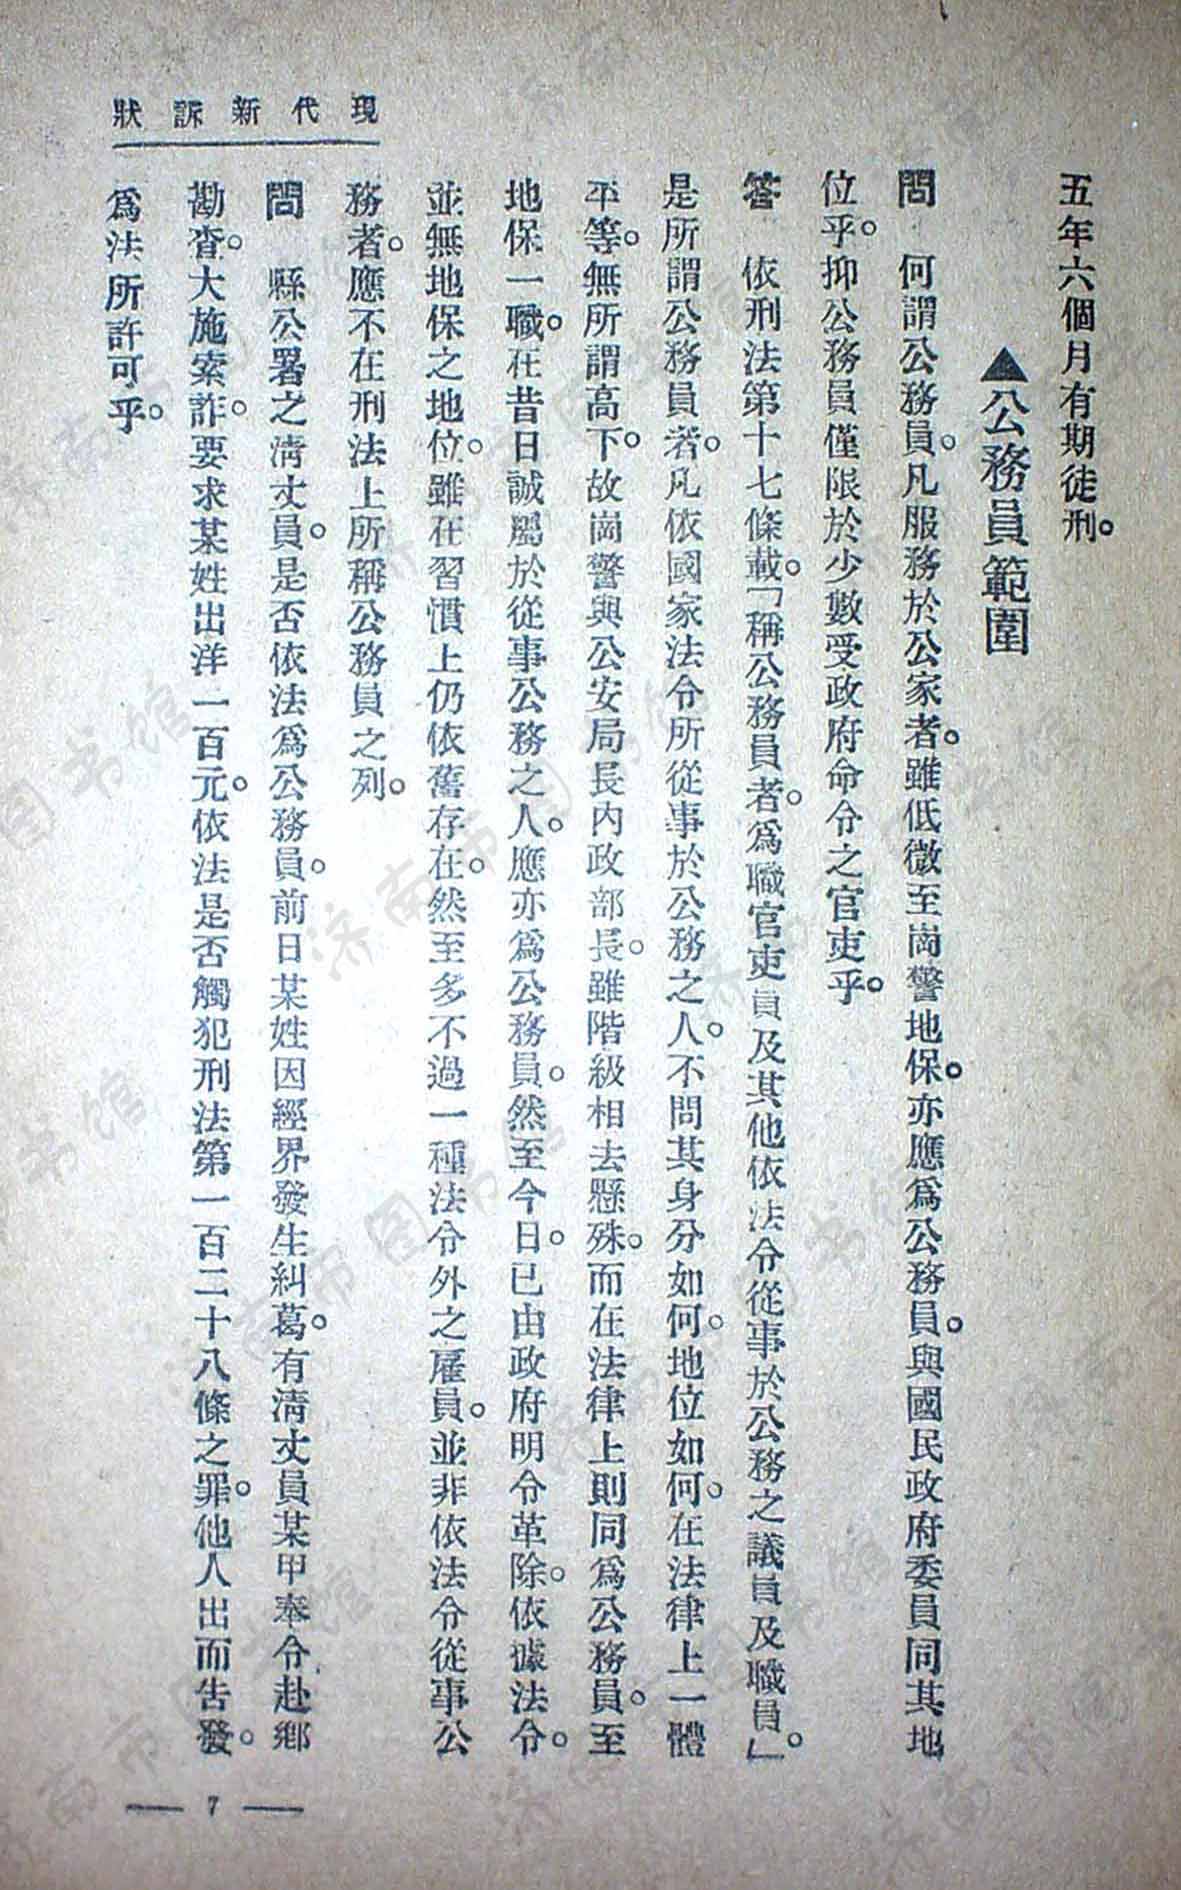 五年六個月有期徒刑。
▲公務員範圍
問　何謂公務員。凡服務於公家者。雖低微至崗警地保。亦應爲公務員。與國民政府委員同其地
位乎。抑公務員僅限於少數受政府命令之官吏乎。
答　依刑法第十七條載。「稱公務員者。爲職官吏員及其他依法令從事於公務之議員及職員。」
是所謂公務員者。凡依國家法令所從事於公務之人。不問其身分如何。地位如何。在法律上一體
平等。無所謂高下。故崗警與公安局長內政部長。雖階級相去懸殊。而在法律上則同爲公務員。至
地保一職。在昔日誠屬於從事公務之人。應亦爲公務員。然至今日。已由政府明令革除。依據法令。
並無地保之地位。雖在習慣上仍依舊存在。然至多不過一種法令外之雇員。並非依法令從事公
務者。應不在刑法上所稱公務員之列。
問　縣公署之淸丈員。是否依法爲公務員。前日某姓因經界發生糾葛。有淸丈員某甲奉令赴鄉
勘查。大施索詐。要求某姓出洋一百元。依法是否觸犯刑法第一百二十八條之罪。他人出而告發。
爲法所許可乎。
現代新訴狀
— 7 —
济南市图书馆